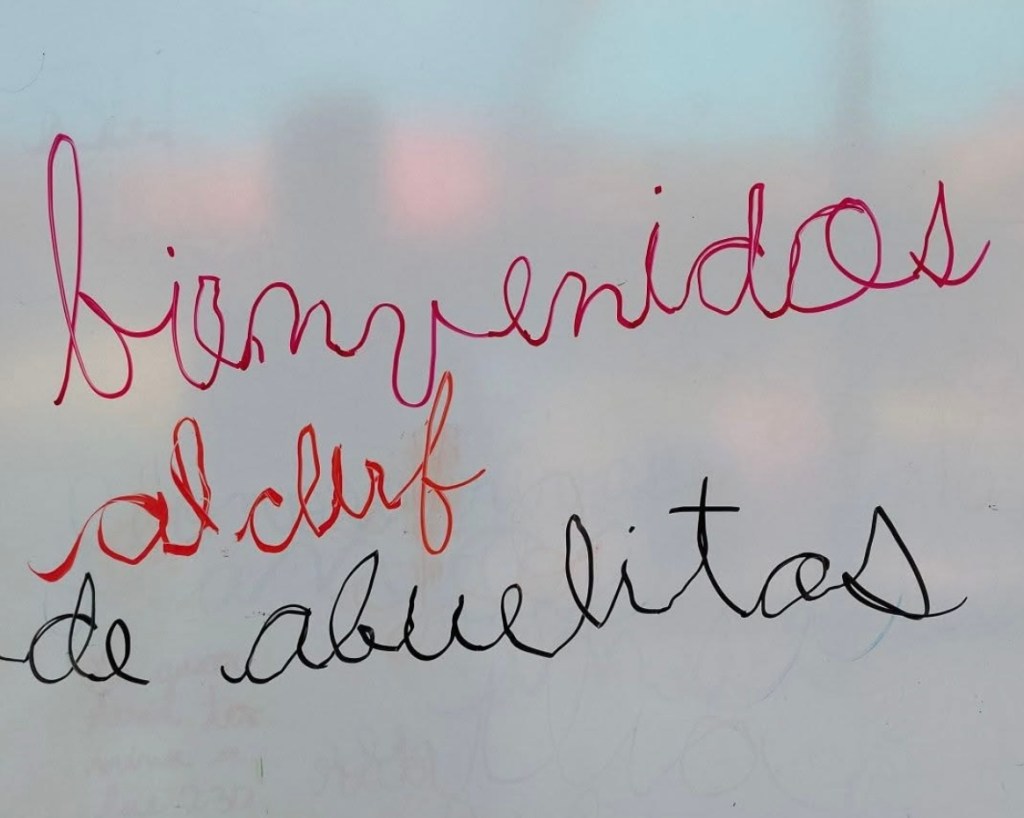 bienvenidos
al
de abuelitos